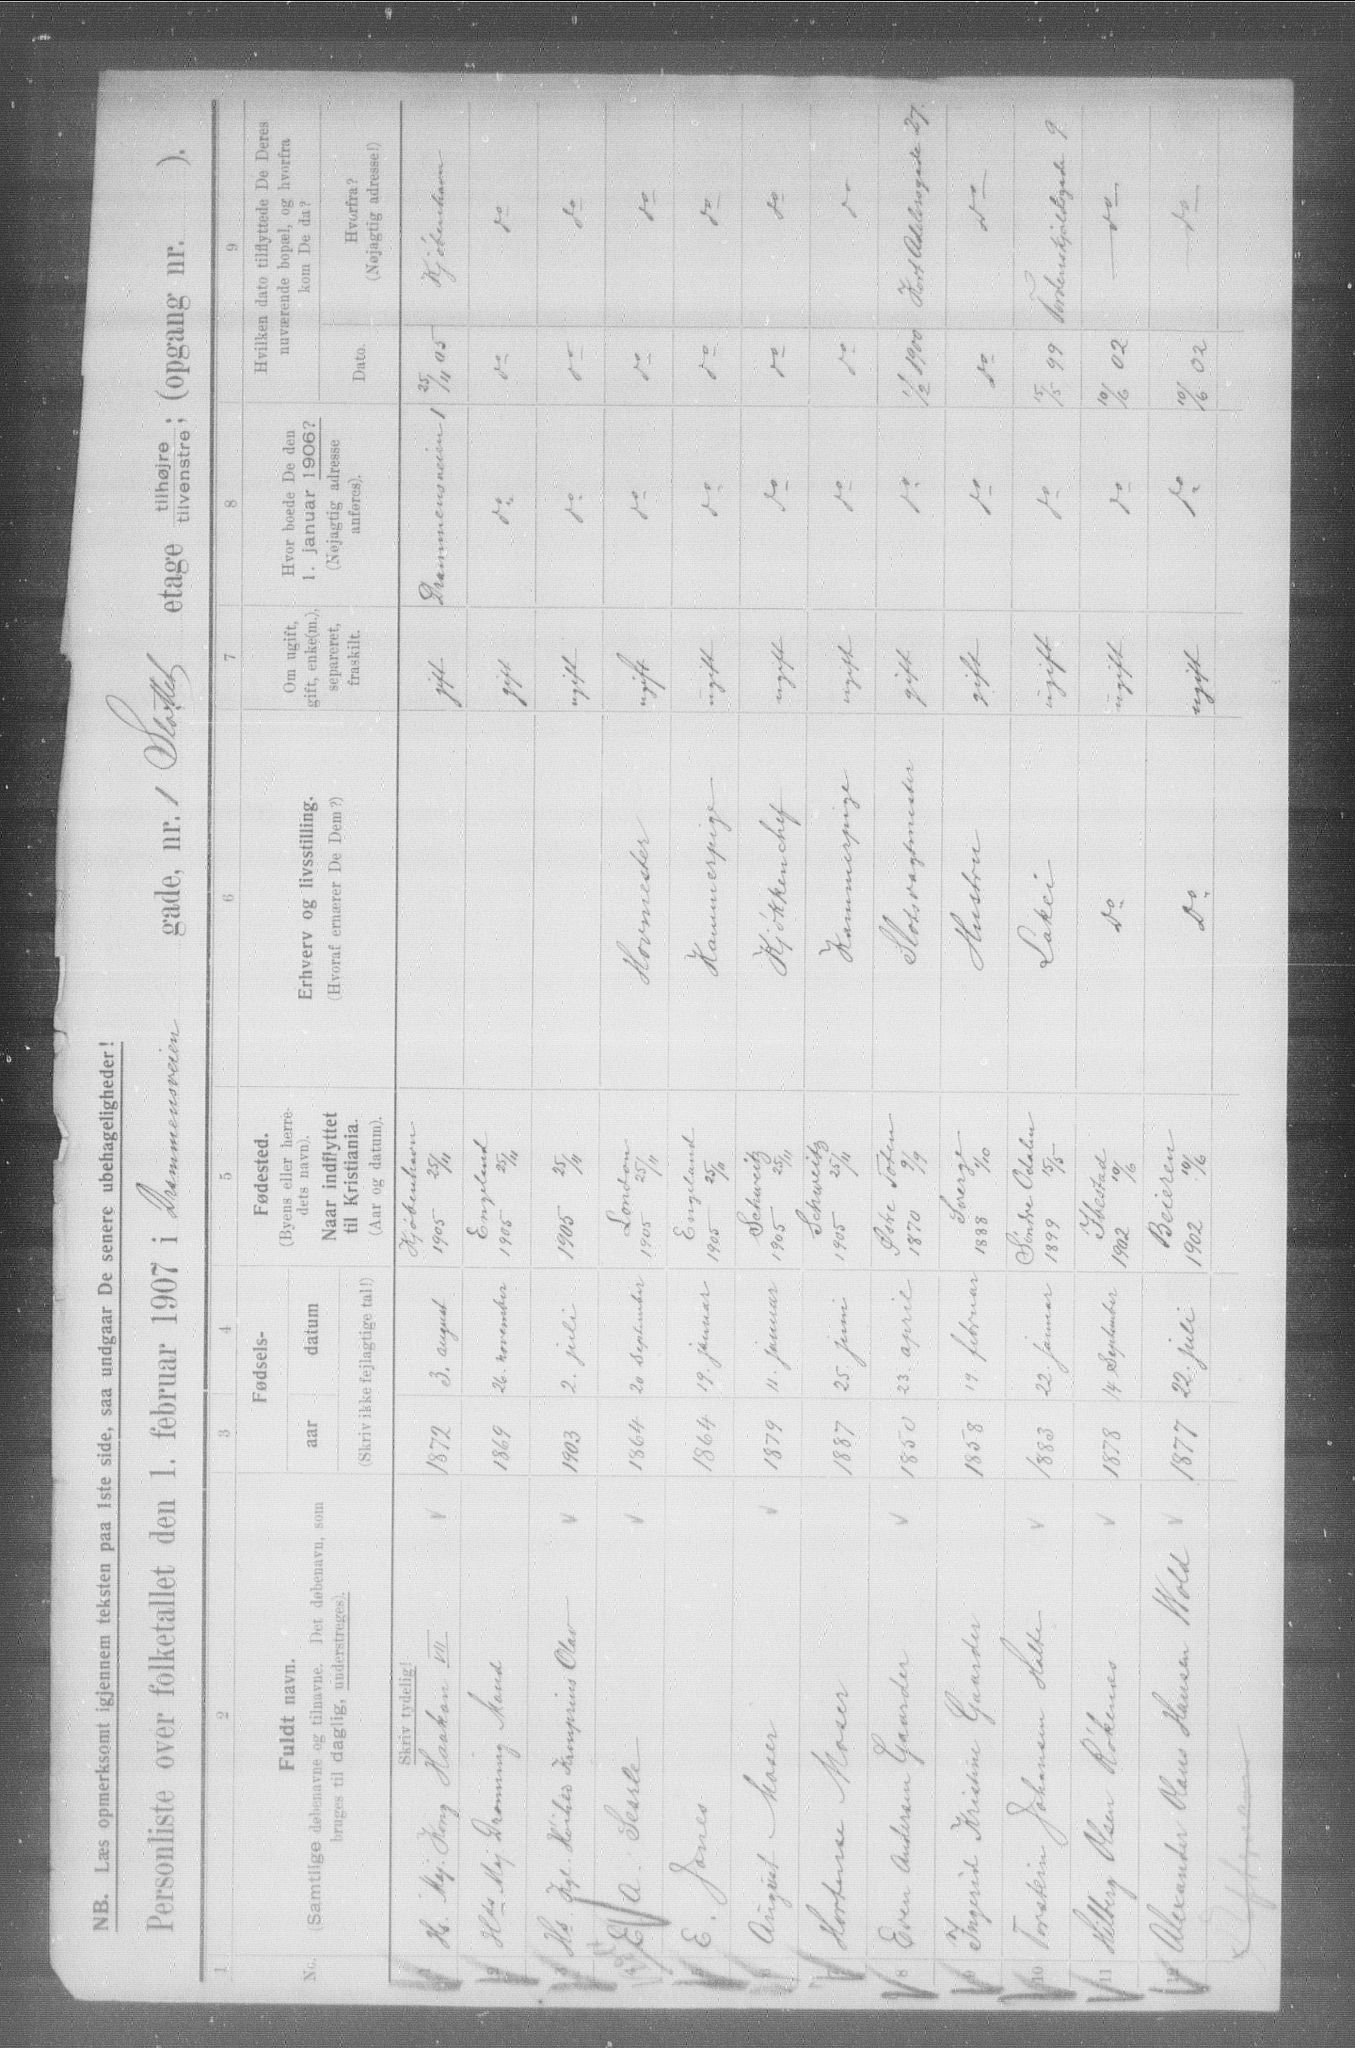 NB. Læs opmerksomt igjennem teksten paa 1ste side, saa undgaar De senere ubehageligheder!
Personliste over folketallet den 1. februar 1907 i Drammensveien gade, nr. 1 Slottet etage tilhøjre; tilvenstre; (opgang nr. ).
1 2 3 4 5 6 7 8 9
Nr.
Fuldt navn.
(Samtlige døbenavne og tilnavne. Det døbenavn, som
bruges til daglig, understreges).
Fødsels-
aar datum
(Skriv ikke fejlagtige tal!)
Fødested.
(Byens eller herre-
dets navn).
Naar indflyttet
til Kristiania.
(Aar og datum).
Erhverv og livsstilling.
(Hvoraf ernærer De Dem?)
Om ugift,
gift, enke(m.),
separeret,
fraskilt.
Hvor boede De den
1. januar 1906?
(Nøjagtig adresse
anføres).
Hvilken dato tilflyttede De Deres
nuværende bopæl, og hvorfra
kom De da?
Dato.
Hvorfra?
(Nøjagtig adresse!)
Skriv tydelig!
1 Hs. Maj. Kong Haakon VII v 1872 3. august Kjøbenhavn 1905 25/11 gift Drammensveien 1 25/11 05 Kjøbenhavn
2 Hds Maj Dronning Maud 1869 26. november Engeland 1905 25/11 gift do do do
3 Hs. Kgl. Høihed Kronprins Olav v 1903 2. juli 1905 25/11 ugift do do do
4 E. A. Searle v 1864 20 september London 1905 25/11 Hovmester ugift do do do
5 E. Jones 1864 19. januar Engeland 1905 25/11 Kammerpige ugift do do do
6 August Moser v 1879 11. januar Schweitz 1905 25/11 Kjøkkenchef ugift do do do
7 Hortense Moser 1887 25. juni Schweitz 1905 25/11 Kammerpige ugift do do do
8 Even Andersen Gaarder v 1850 23. april Østre Toten 1870 9/9 Slotsvagtmester gift do 1/12 1900 Kort Adelersgade 27.
9 Ingerid Kristine Gaarder 1858 19 februar Sverge 1888 1/10 Hustru gift do do do
10 Torstein Johansen Holthe v 1883 22. januar Søndre Odalen 1899 15/5 Lakei ugift do 15/5 99 Tordenskjoldsgade 9
11 Hilberg Olsen Røkenes v 1878 14 September Ibestad 1902 10/6 do ugift do 10/6 02 do
12 Alexander Olaus Hansen Wold v 1877 22. juli Beieren 1902 10/6 do ugift do 10/6 02 do